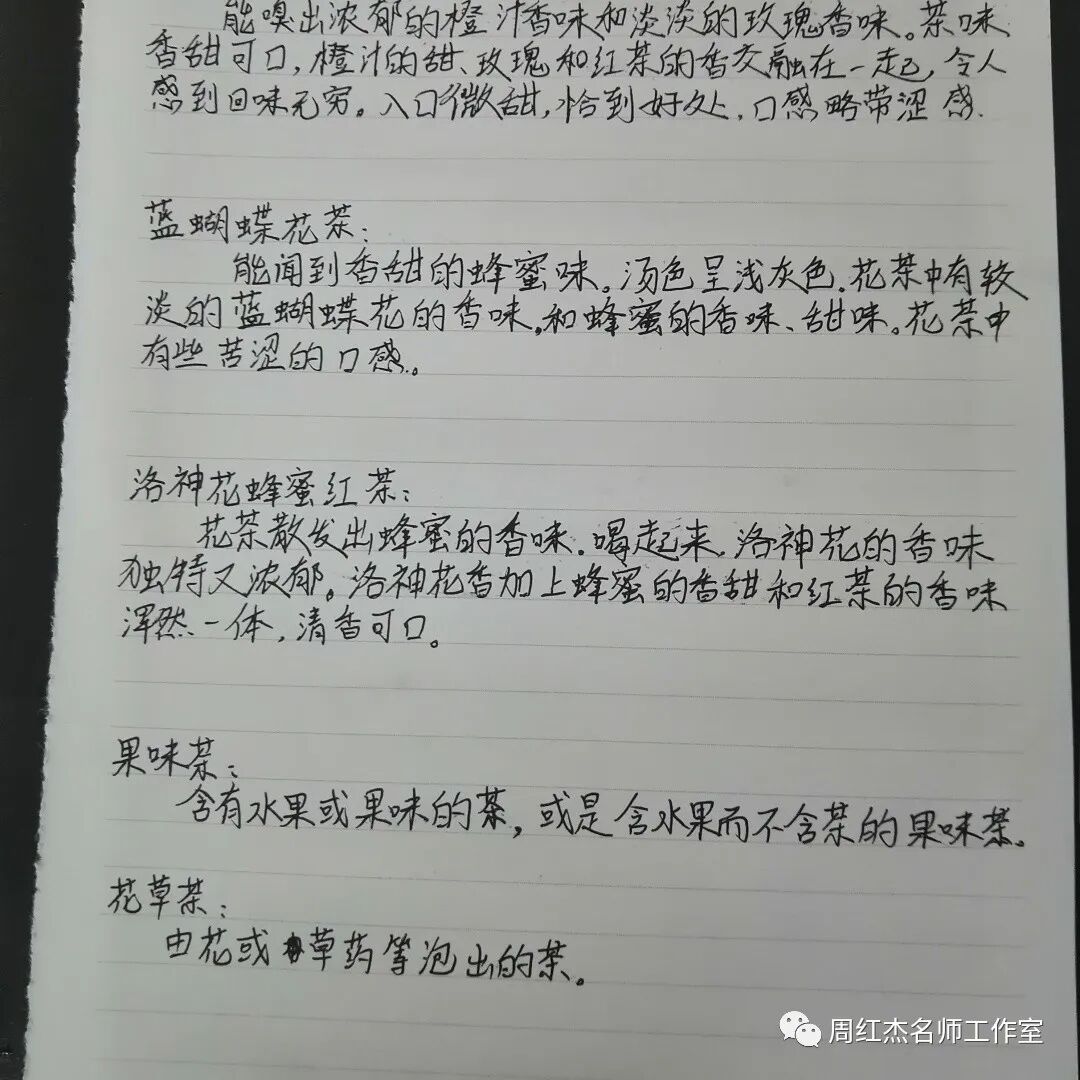 能嗅出浓郁的橙汁香味和淡淡的玫瑰香味。茶味
香甜可口，橙汁的甜、玫瑰和红茶的香交融在一起，令人
感到回味无穷。入口微甜，恰到好处，口感略带涩感.
蓝蝴蝶花茶：
能闻到香甜的蜂蜜味。汤色呈浅灰色.花茶中有较
淡的蓝蝴蝶花的香味,和蜂蜜的香味、甜味。花茶中
有些苦涩的口感。
洛神花蜂蜜红茶：
花茶散发出蜂蜜的香味。喝起来，洛神花的香味
独特又浓郁。洛神花香加上蜂蜜的香甜和红茶的香味
浑然一体，清香可口。
果味茶：
含有水果或果味的茶，或是含水果而不含茶的果味茶。
花草茶：
由花或草药等泡出的茶。
周红杰名师工作室